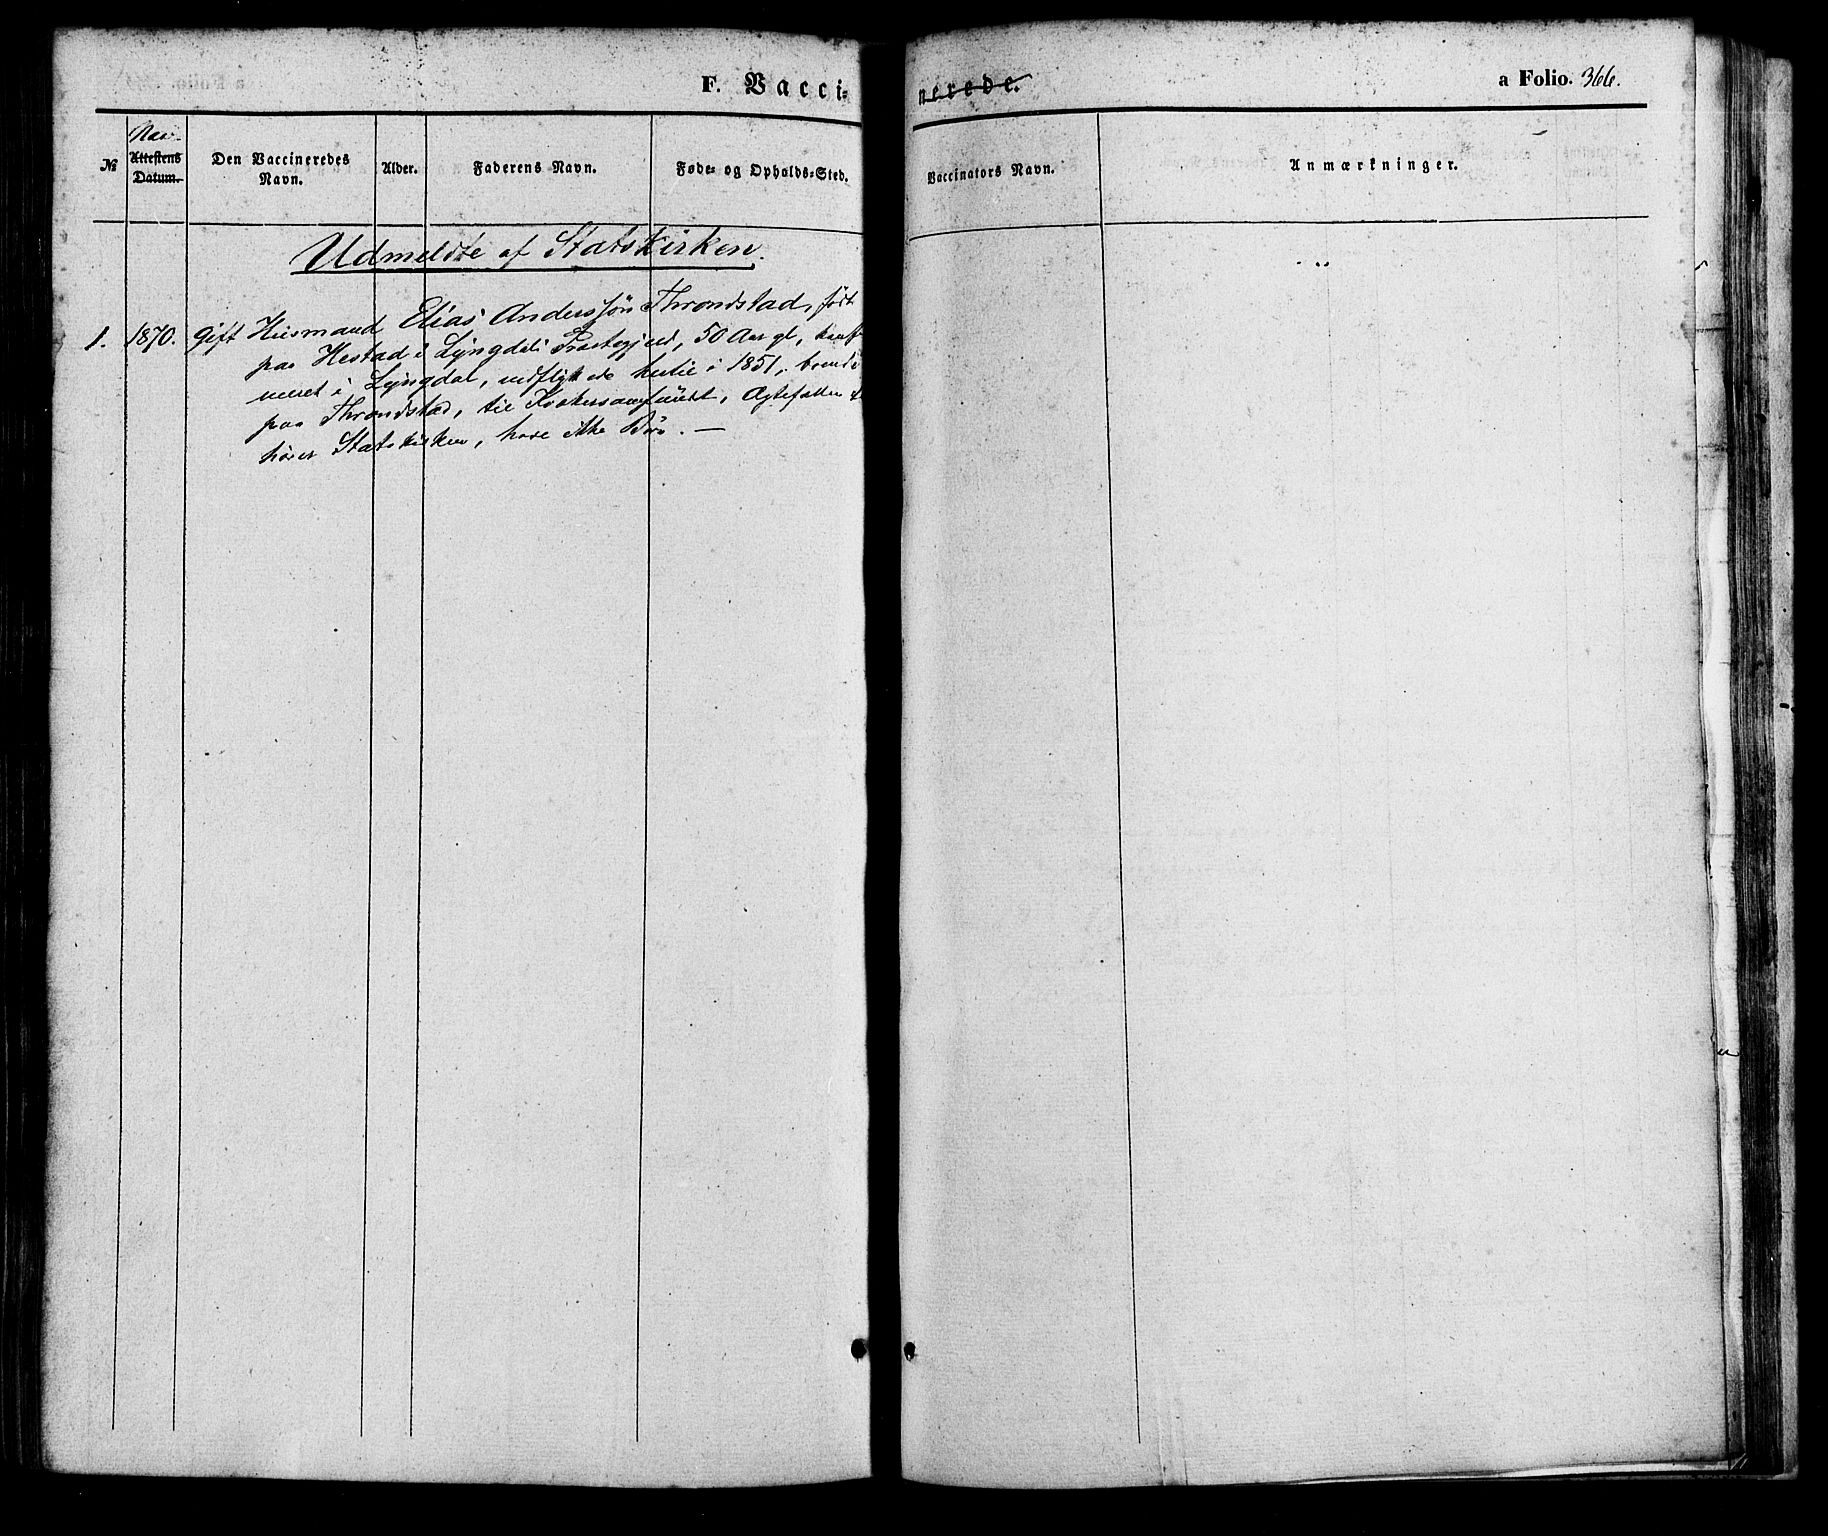 F. Vacci-
nerede.
a Folio. 366.
No
Aar
Attestens Datum.
Den Vaccineredes Navn.
Alder.
Faderens Navn.
Føde- og Opholds-Sted.
Vaccinators Navn.
Anmærkninger.
Udmeldte af Statskirken.
1. 1870. Gift Husmand Elias Anderssøn Throndstad, født
paa Hestad i Lyngdals Præstegjeld, 50 Aar gl,
i Lyngdal, indflyttede hertil i 1851,
paa Throndstad, til Kvækersamfundet, Ægtefællen
hører Statskirken, have ikke Børn. —